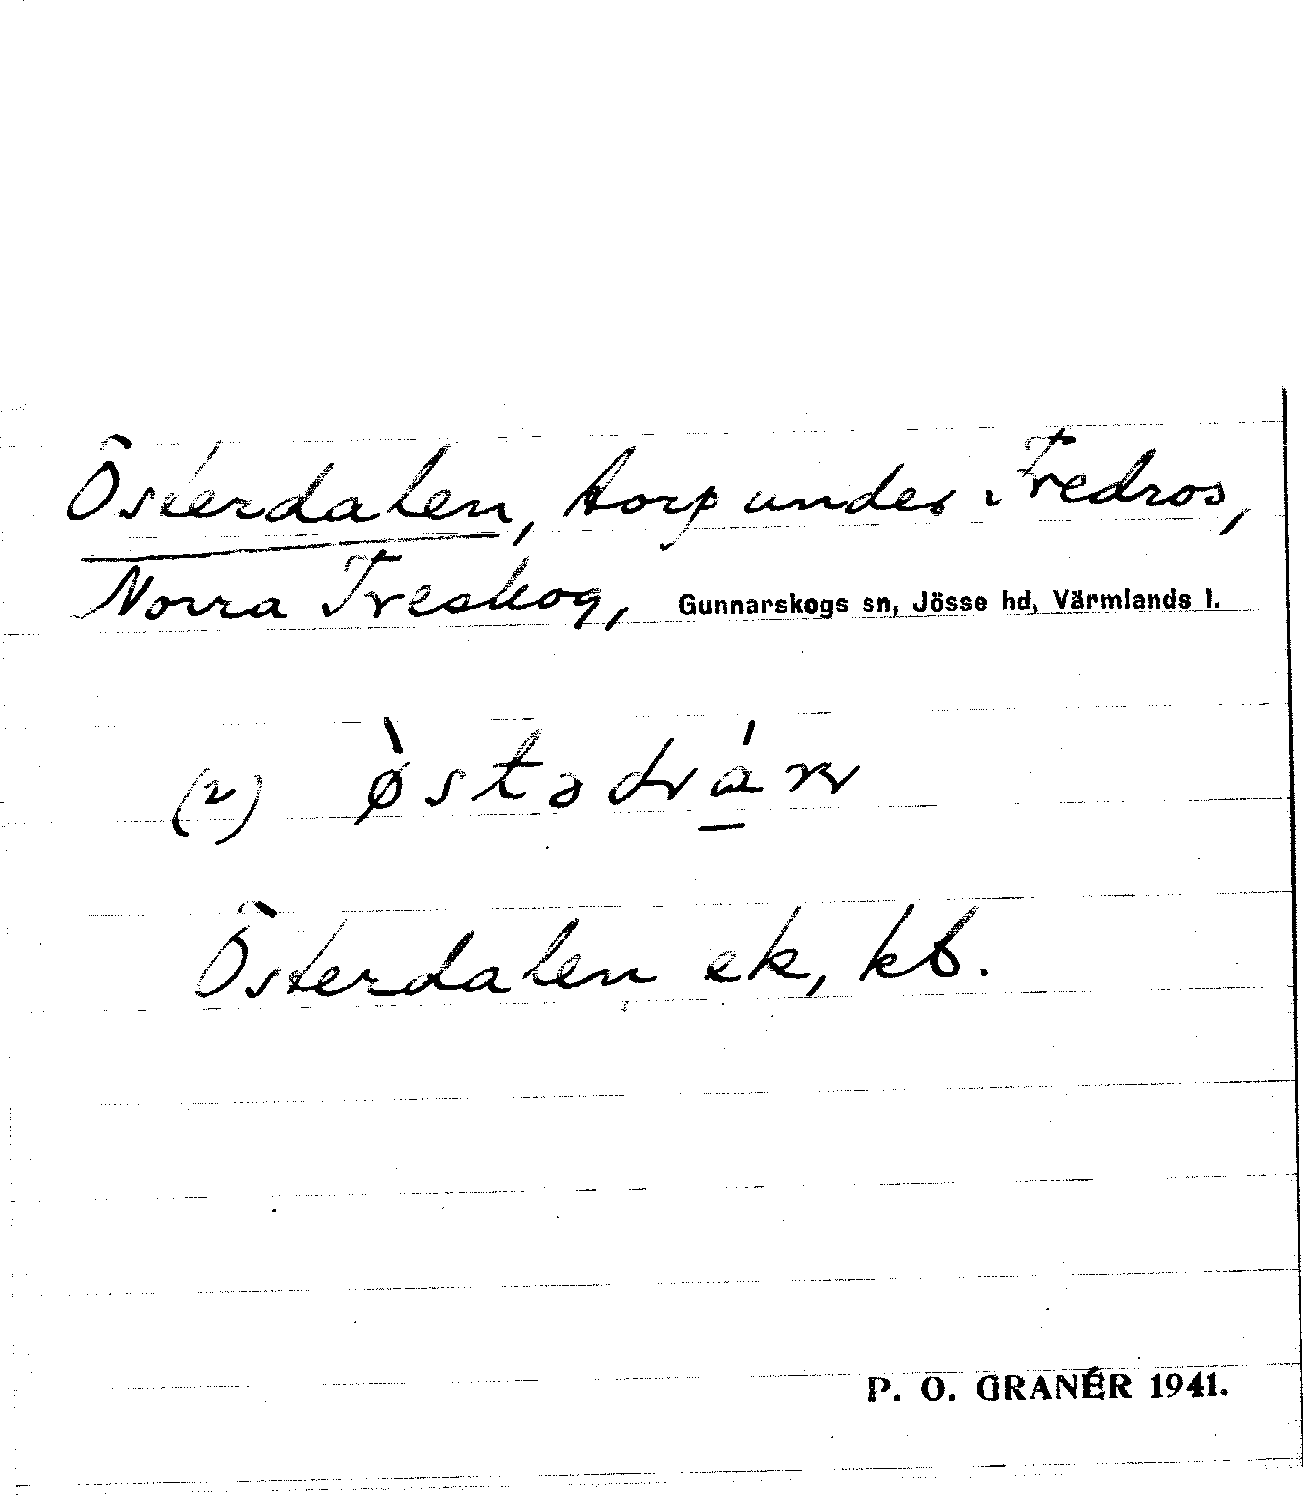 Österdalen, torp under Fredros,
Norra Treskog, Gunnarskogs sn, Jösse hd, Värmlands l.
(2)
Österdalen ek, kb.
P. O. GRANÉR 1941.